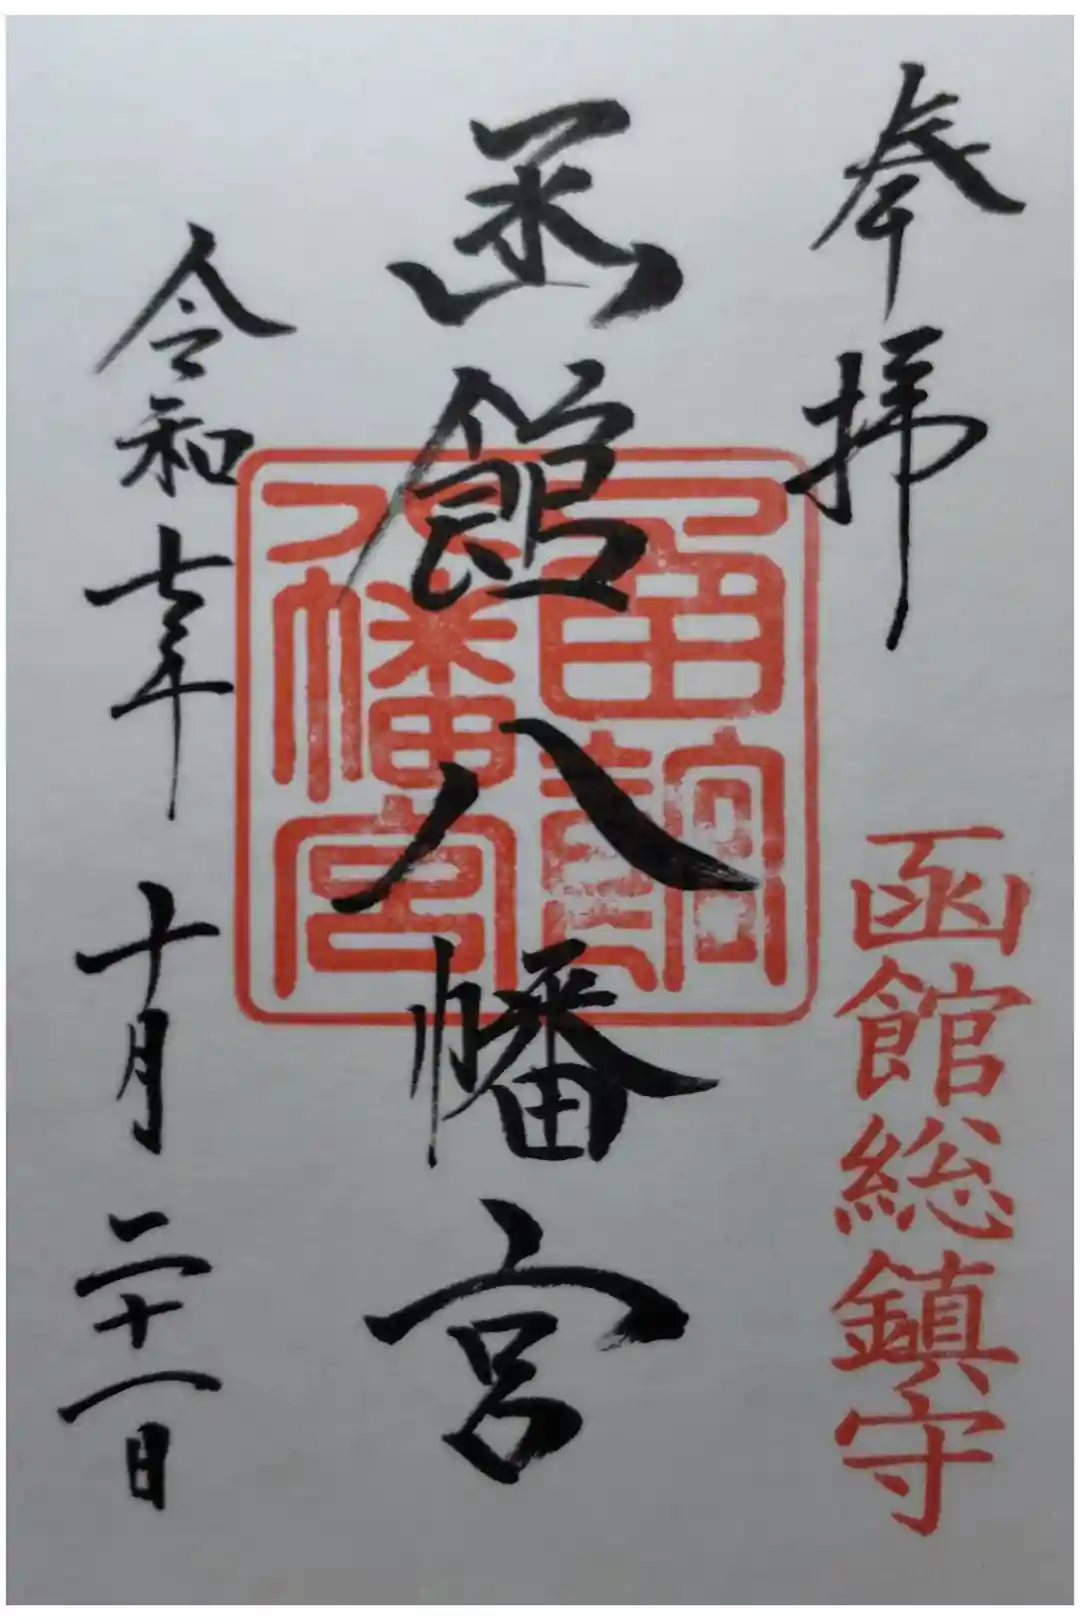 奉拝
函館総鎮守
函館八幡宮
函館八幡宮
令和七年十月二十一日